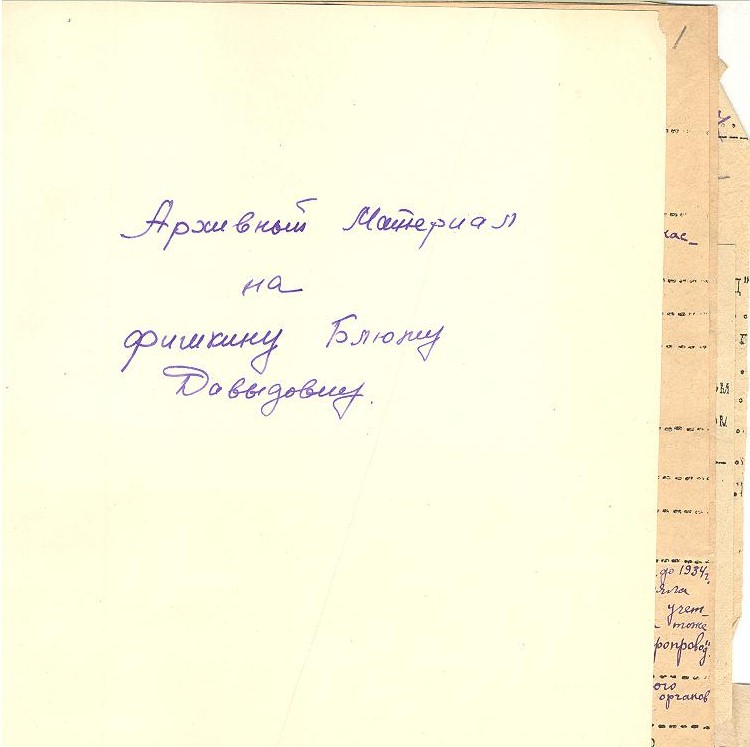 Архивный Материал
на
Фишкину Блюму
Давыдовну.
до 1934г.
учет-
тоже
органов